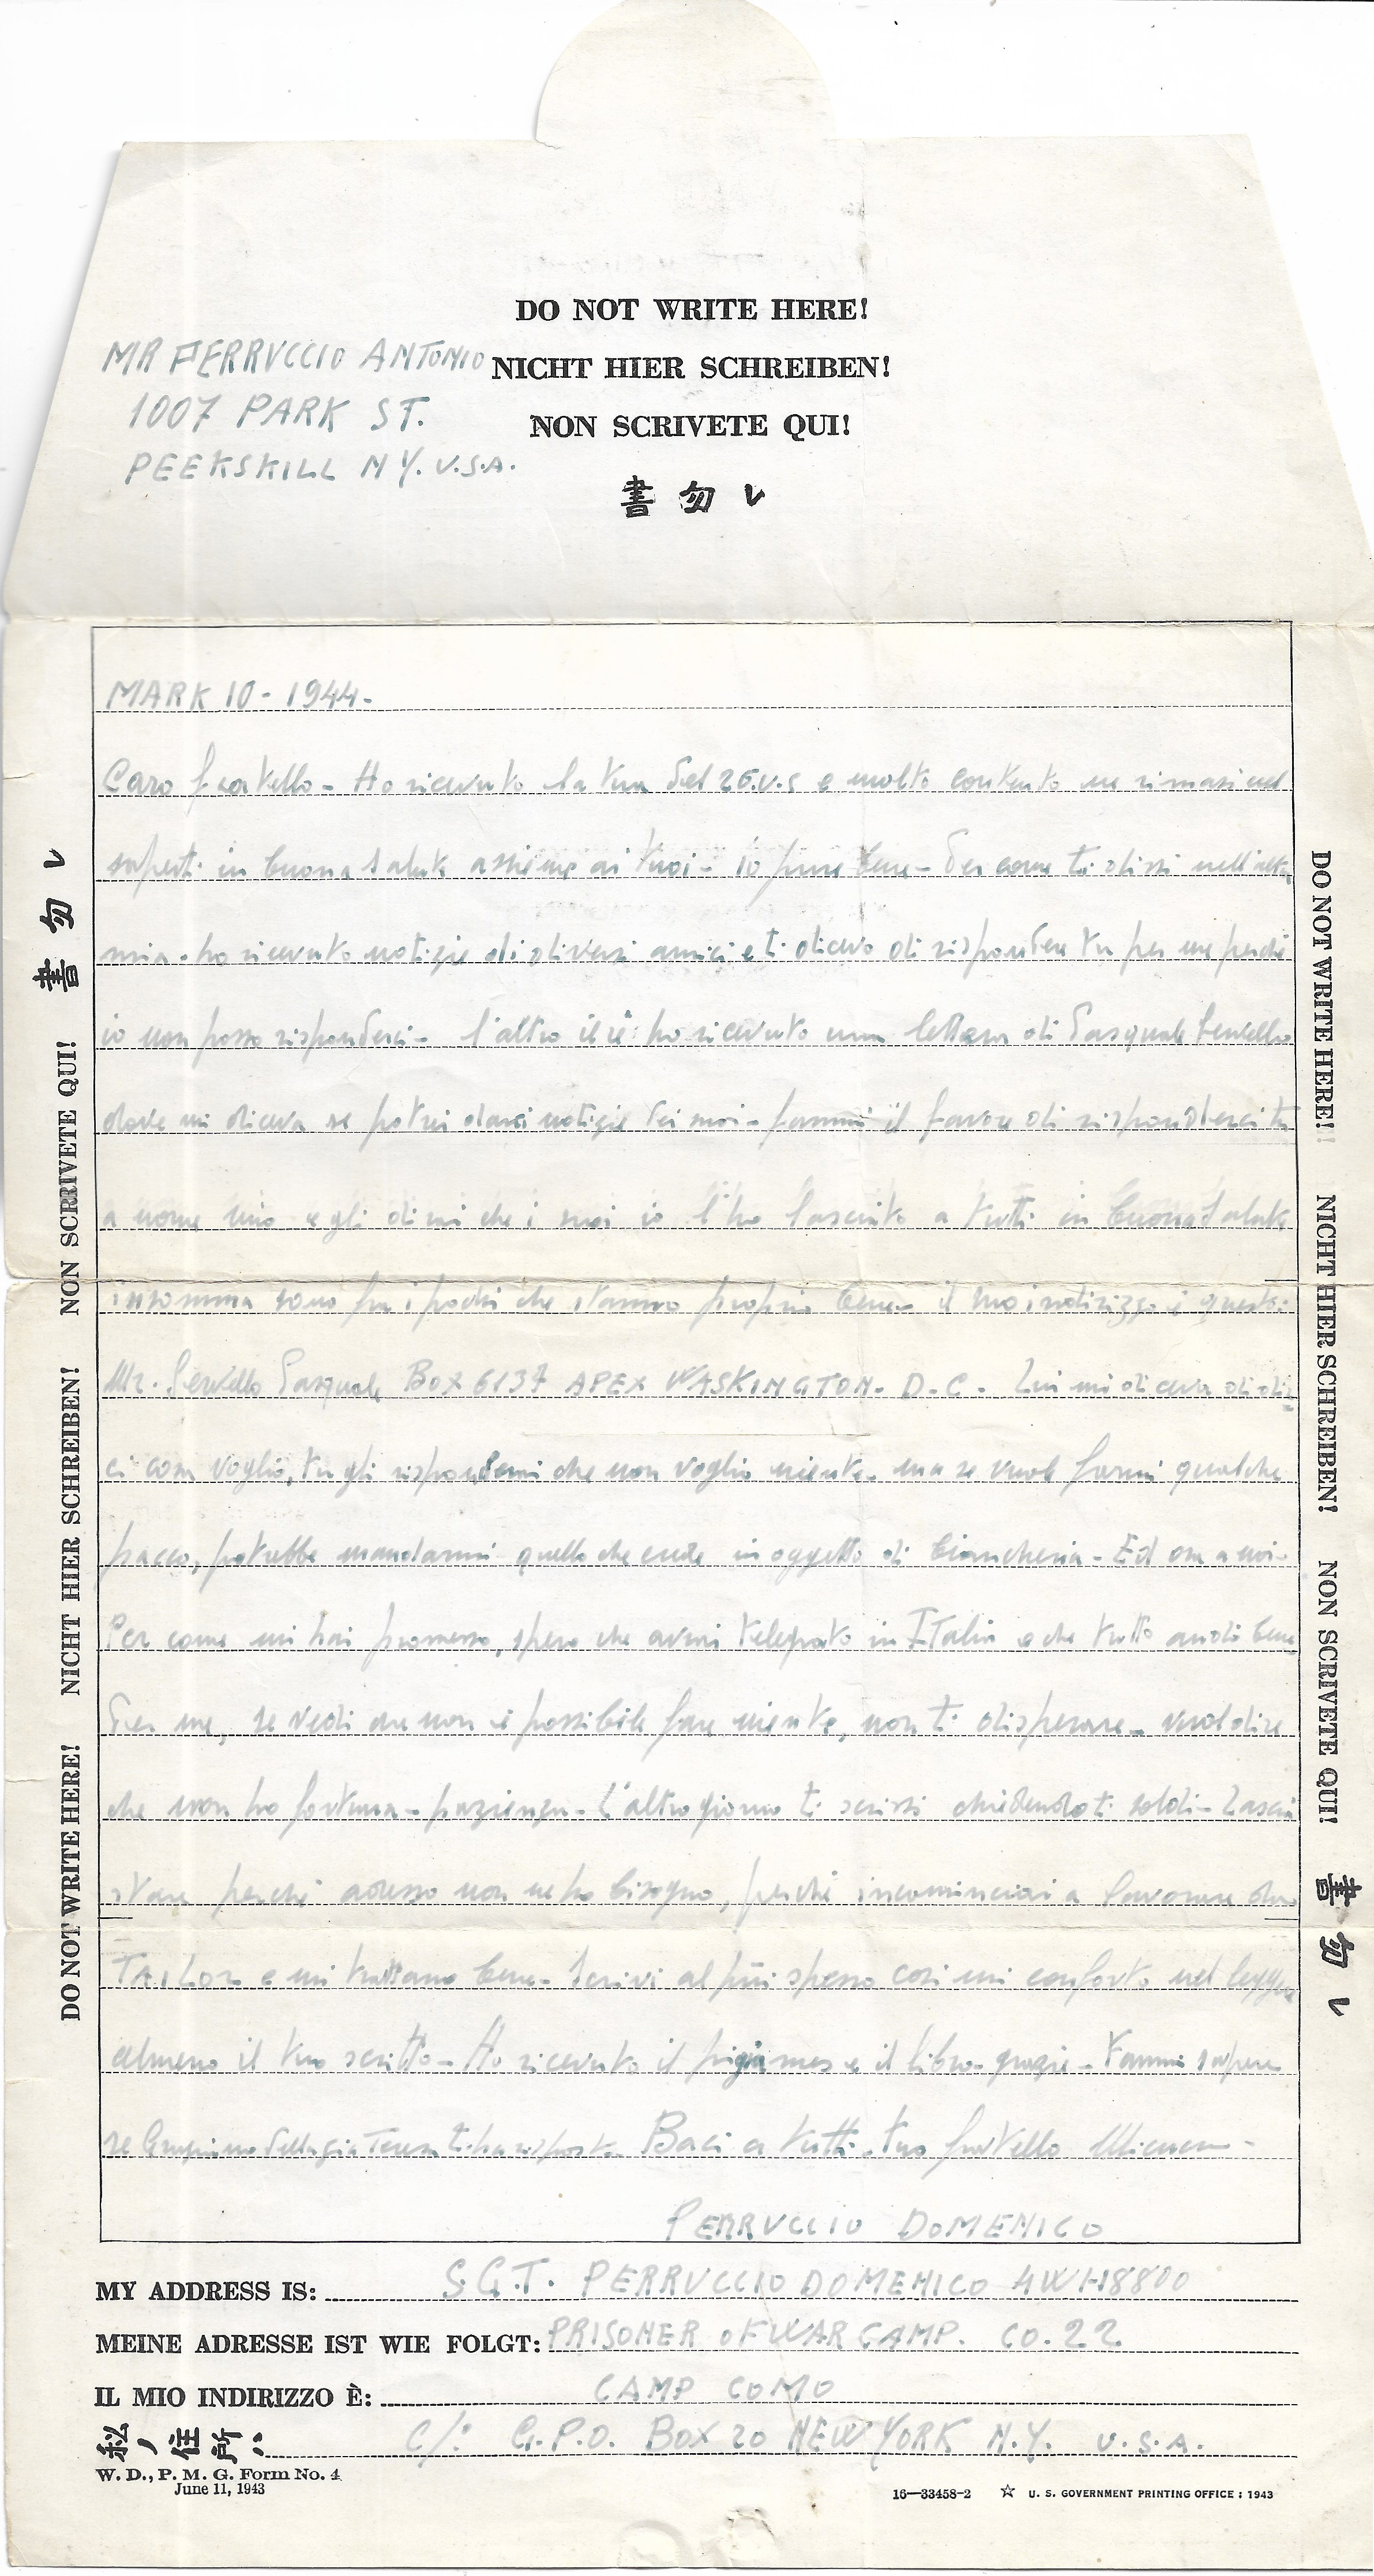 DO NOT WRITE HERE!
NICHT HIER SCHREIBEN!
NON SCRIVETE QUI!
書 勿 レ
MR PERRUCCIO ANTONIO
1007 PARK ST.
PEEKSKILL N Y. U.S.A.
MARK 10 - 1944 -
Caro fratello - Ho ricevuto la tua del 26.u.s e molto contento ne rimasi nel
saperti in buona salute assieme ai tuoi - io pure bene - Per come ti dissi nell'altra
mia - ho ricevuto notizie di diversi amici e ti dicevo di rispondere tu per me perché
io non posso risponderci - l'altro ieri ho ricevuto una lettera di Pasquale
dove mi diceva se potevi darci notizie dei suoi - fammi il favore di risponderci tu
a nome mio e gli dirai che i suoi io l'ho lasciato a tutti in buona salute
insomma sono fra i pochi che stanno proprio bene - il suo indirizzo è questo:
Mr. Pasquale BOX 6137 APEX WASKINGTON. D.C. - Lui mi diceva di dir
ci cosa voglio, tu gli risponderai che non voglio niente - ma se vuole farmi qualche
pacco, potrebbe mandarmi quello che crede in oggetto di biancheria - Ed ora a noi -
Per come mi hai promesso, spero che avrai telegrafato in ITalia e che tutto andò bene
Per me, se vedi che non è possibile fare niente, non ti disperare - vuol dire
che non ho fortuna - pazienza - L'altro giorno ti scrissi chiedendoti soldi - Lascia
stare perché adesso non ne ho bisogno, perché incominciai a lavorare da
TAILOR e mi trattano bene - Scrivi al più spesso così mi conforto nel leggere
almeno il tuo scritto - Ho ricevuto il e il libro - grazie - Fammi sapere
se della zia Teresa ti ha risposto Baci a tutti tuo fratello
PERRUCCIO DOMENICO
MY ADDRESS IS: S.G.T. PERRUCCIO DOMENICO 4WI-18800
MEINE ADRESSE IST WIE FOLGT: PRISONER OF WAR CAMP. CO. 22
IL MIO INDIRIZZO È: CAMP COMO
私ノ住所ハ C/: G.P.O. BOX 20 NEW YORK N.Y. U.S.A.
W. D., P. M. G. Form No. 4
June 11, 1943
16—33458-2 ☆ U. S. GOVERNMENT PRINTING OFFICE : 1943
DO NOT WRITE HERE! NICHT HIER SCHREIBEN! NON SCRIVETE QUI! 書 勿 レ
DO NOT WRITE HERE! NICHT HIER SCHREIBEN! NON SCRIVETE QUI! 書 勿 レ